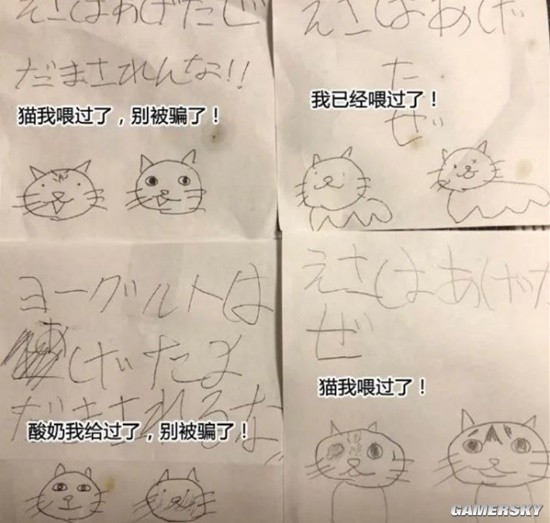 えさはあげたぜ
だまされんな!!
猫我喂过了，别被骗了！
えさはあげ
た
我已经喂过了！
ぜ
ヨーグルトは
あげたよ
だまされるな
酸奶我给过了，别被骗了！
えさはあげた
ぜ
猫我喂过了！
GAMERSKY